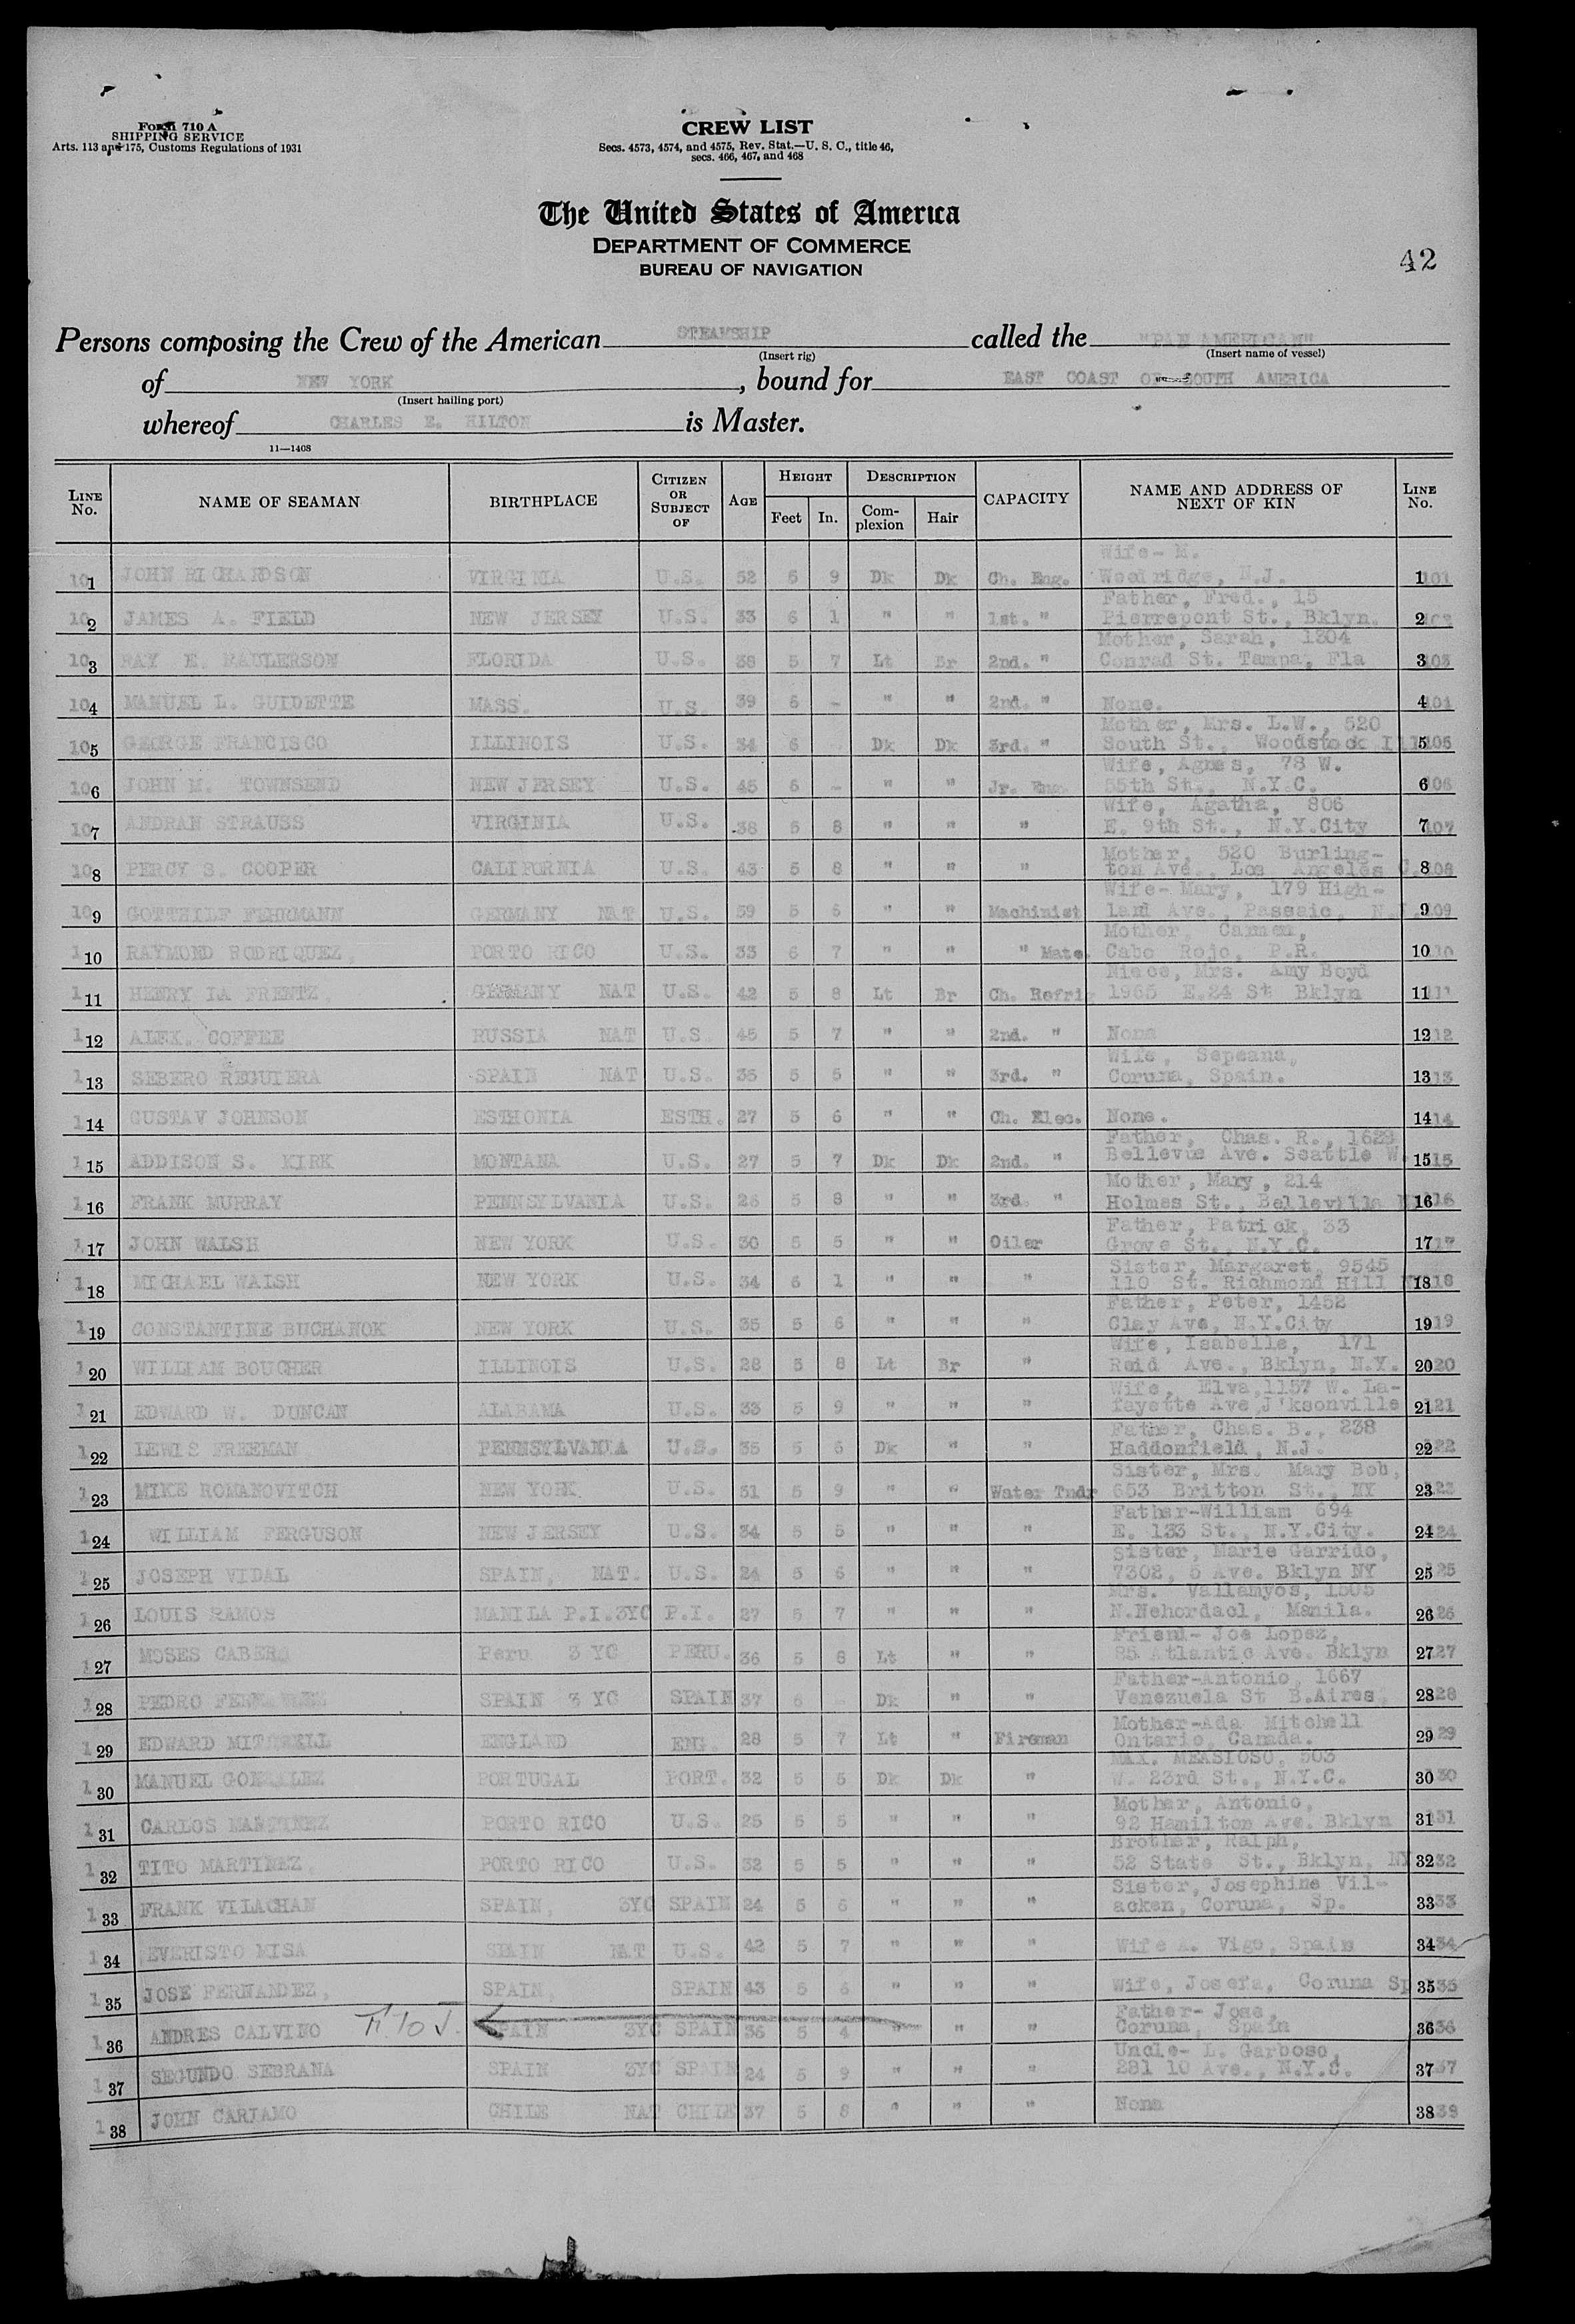 Form 710 A
SHIPPING SERVICE
Arts. 113 and 175, Customs Regulations of 1931
CREW LIST
Secs. 4573, 4574, and 4575, Rev. Stat.—U. S. C., title 46,
secs. 466, 467, and 468
The United States of America
DEPARTMENT OF COMMERCE
BUREAU OF NAVIGATION
42
Persons composing the Crew of the American STEAMSHIP called the "PAN AMERICAN"
(Insert rig) (Insert name of vessel)
of NEW YORK, bound for EAST COAST OF SOUTH AMERICA
(Insert hailing port)
whereof CHARLES E. HILTON is Master.
11—1408
LINE No. NAME OF SEAMAN BIRTHPLACE CITIZEN OR SUBJECT OF AGE HEIGHT Feet In. DESCRIPTION Complexion Hair CAPACITY NAME AND ADDRESS OF NEXT OF KIN LINE No.
Wife- M.
101 JOHN RICHARDSON VIRGINIA U.S. 52 5 9 Dk Dk Ch. Eng. Woodridge, N.J. 1 101
Father, Fred., 15
102 JAMES A. FIELD NEW JERSEY U.S. 33 6 1 " " 1st. " Pierrepont St., Bklyn. 2
Mother, Sarah, 1304
103 RAY E. RAULERSON FLORIDA U.S. 38 5 7 Lt Br 2nd. " Conrad St. Tampa, Fla 3 103
104 MANUEL L. GUIDETTE MASS. U.S. 39 6 - " " 2nd. " None. 4
Mother, Mrs. L.W., 520
105 GEORGE FRANCISCO ILLINOIS U.S. 34 6 Dk Dk 3rd. " South St., Woodstock Ill 5 105
Wife, Agnes, 78 W.
106 JOHN M. TOWNSEND NEW JERSEY U.S. 45 6 - " " Jr. Eng. 55th St., N.Y.C. 6 106
Wife, Agatha, 806
107 ANDRAN STRAUSS VIRGINIA U.S. 38 5 8 " " " E. 9th St., N.Y.City 7 107
Mother, 520 Burling-
108 PERCY S. COOPER CALIFORNIA U.S. 43 5 8 " " " ton Ave., Los Angeles C. 8 108
Wife- Mary, 179 High-
109 GOTTHILF FEHRMANN GERMANY NAT U.S. 59 5 6 " " Machinist land Ave., Passaic, N.J. 9 109
Mother, Carmen,
110 RAYMOND RODRIQUEZ, PORTO RICO U.S. 33 6 7 " " " Mate. Cabo Rojo, P.R. 10 10
Niece, Mrs. Amy Boyd
111 HENRY LA FRENTZ, GERMANY NAT U.S. 42 5 8 Lt Br Ch. Refrig 1965 E.24 St Bklyn 11 11
112 ALEX. COFFEE RUSSIA NAT U.S. 45 5 7 " " 2nd. " None 12 12
Wife, Sepeana,
113 SEBERO REGUIERA SPAIN NAT U.S. 35 5 5 " " 3rd. " Coruna, Spain. 13 13
114 GUSTAV JOHNSON ESTHONIA ESTH. 27 5 6 " " Ch. Elec. None. 14 14
Father, Chas. R., 1623
115 ADDISON S. KIRK MONTANA U.S. 27 5 7 Dk Dk 2nd. " Bellevue Ave. Seattle W. 15 15
Mother, Mary, 214
116 FRANK MURRAY PENNSYLVANIA U.S. 26 5 8 " " 3rd. " Holmes St., Belleville 16 16
Father, Patrick, 33
117 JOHN WALSH NEW YORK U.S. 30 5 5 " " Oiler Grove St., N.Y.C. 17 17
Sister, Margaret, 9545
118 MICHAEL WALSH NEW YORK U.S. 34 6 1 " " " 110 St. Richmond Hill 18 18
Father, Peter, 1452
119 CONSTANTINE BUCHANOK NEW YORK U.S. 35 5 6 " " " Clay Ave, N.Y.City 19 19
Wife, Isabelle, 171
120 WILLIAM BOUCHER ILLINOIS U.S. 28 5 8 Lt Br " Reid Ave., Bklyn, N.Y. 20 20
Wife, Elva, 1157 W. La-
121 EDWARD W. DUNCAN ALABAMA U.S. 33 5 9 " " " fayette Ave J'ksonville 21 21
Father, Chas. B., 238
122 LEWIS FREEMAN PENNSYLVANIA U.S. 35 5 6 Dk " " Haddonfield, N.J. 22 22
Sister, Mrs. Mary Bob,
123 MIKE ROMANOVITCH NEW YORK U.S. 31 5 9 " " Water Tndr 653 Britton St., NY 23 23
Father-William 694
124 WILLIAM FERGUSON NEW JERSEY U.S. 34 5 5 " " " E. 133 St., N.Y.City. 24 24
Sister, Marie Garrido,
125 JOSEPH VIDAL SPAIN, NAT. U.S. 24 5 6 " " " 7302, 5 Ave. Bklyn NY 25 25
Mrs. Vallamyos, 1505
126 LOUIS RAMOS MANILA P.I. 3YC P.I. 27 5 7 " " " N.Nehordacl, Manila. 26 26
Friend- Joe Lopez,
127 MOSES CABERO Peru 3 YC PERU. 36 5 8 Lt " " 85 Atlantic Ave. Bklyn 27 27
Father-Antonio, 1667
128 PEDRO FERNANDEZ SPAIN 3 YC SPAIN 37 6 - Dk " " Venezuela St B.Aires 28 28
Mother-Ada Mitchell
129 EDWARD MITCHELL ENGLAND ENG. 28 5 7 Lt " Fireman Ontario, Canada. 29 29
MAX. MEASIOSO, 503
130 MANUEL GONZALEZ PORTUGAL PORT. 32 5 5 Dk Dk " W. 23rd St., N.Y.C. 30 30
Mother, Antonio,
131 CARLOS MARTINEZ PORTO RICO U.S. 25 5 5 " " " 92 Hamilton Ave. Bklyn 31 31
Brother, Ralph,
132 TITO MARTINEZ, PORTO RICO U.S. 32 5 5 " " " 52 State St., Bklyn, NY 32 32
Sister, Josephine Vil-
133 FRANK VILACHAN SPAIN, 3YC SPAIN 24 5 6 " " " acken, Coruna, Sp. 33 33
134 EVERISTO MISA SPAIN NAT U.S. 42 5 7 " " " Wife A. Vigo, Spain 34 34
135 JOSE FERNANDEZ, SPAIN, SPAIN 43 5 6 " " " Wife, Josefa, Coruna Sp 35 35
Father- Jose,
136 ANDRES CALVINO SPAIN 3YC SPAIN 36 5 4 " " Coruna, Spain 36 36
Uncle- L. Garboso,
137 SEGUNDO SEBRANA SPAIN 3YC SPAIN 24 5 9 " " " 281 10 Ave., N.Y.C. 37 37
138 JOHN CARJAMO CHILE NAT CHILE 37 5 8 " " " None 38 38